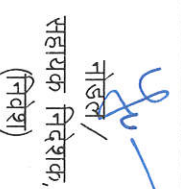 नोडल/
सहायक निदेशक,
(निवेश)